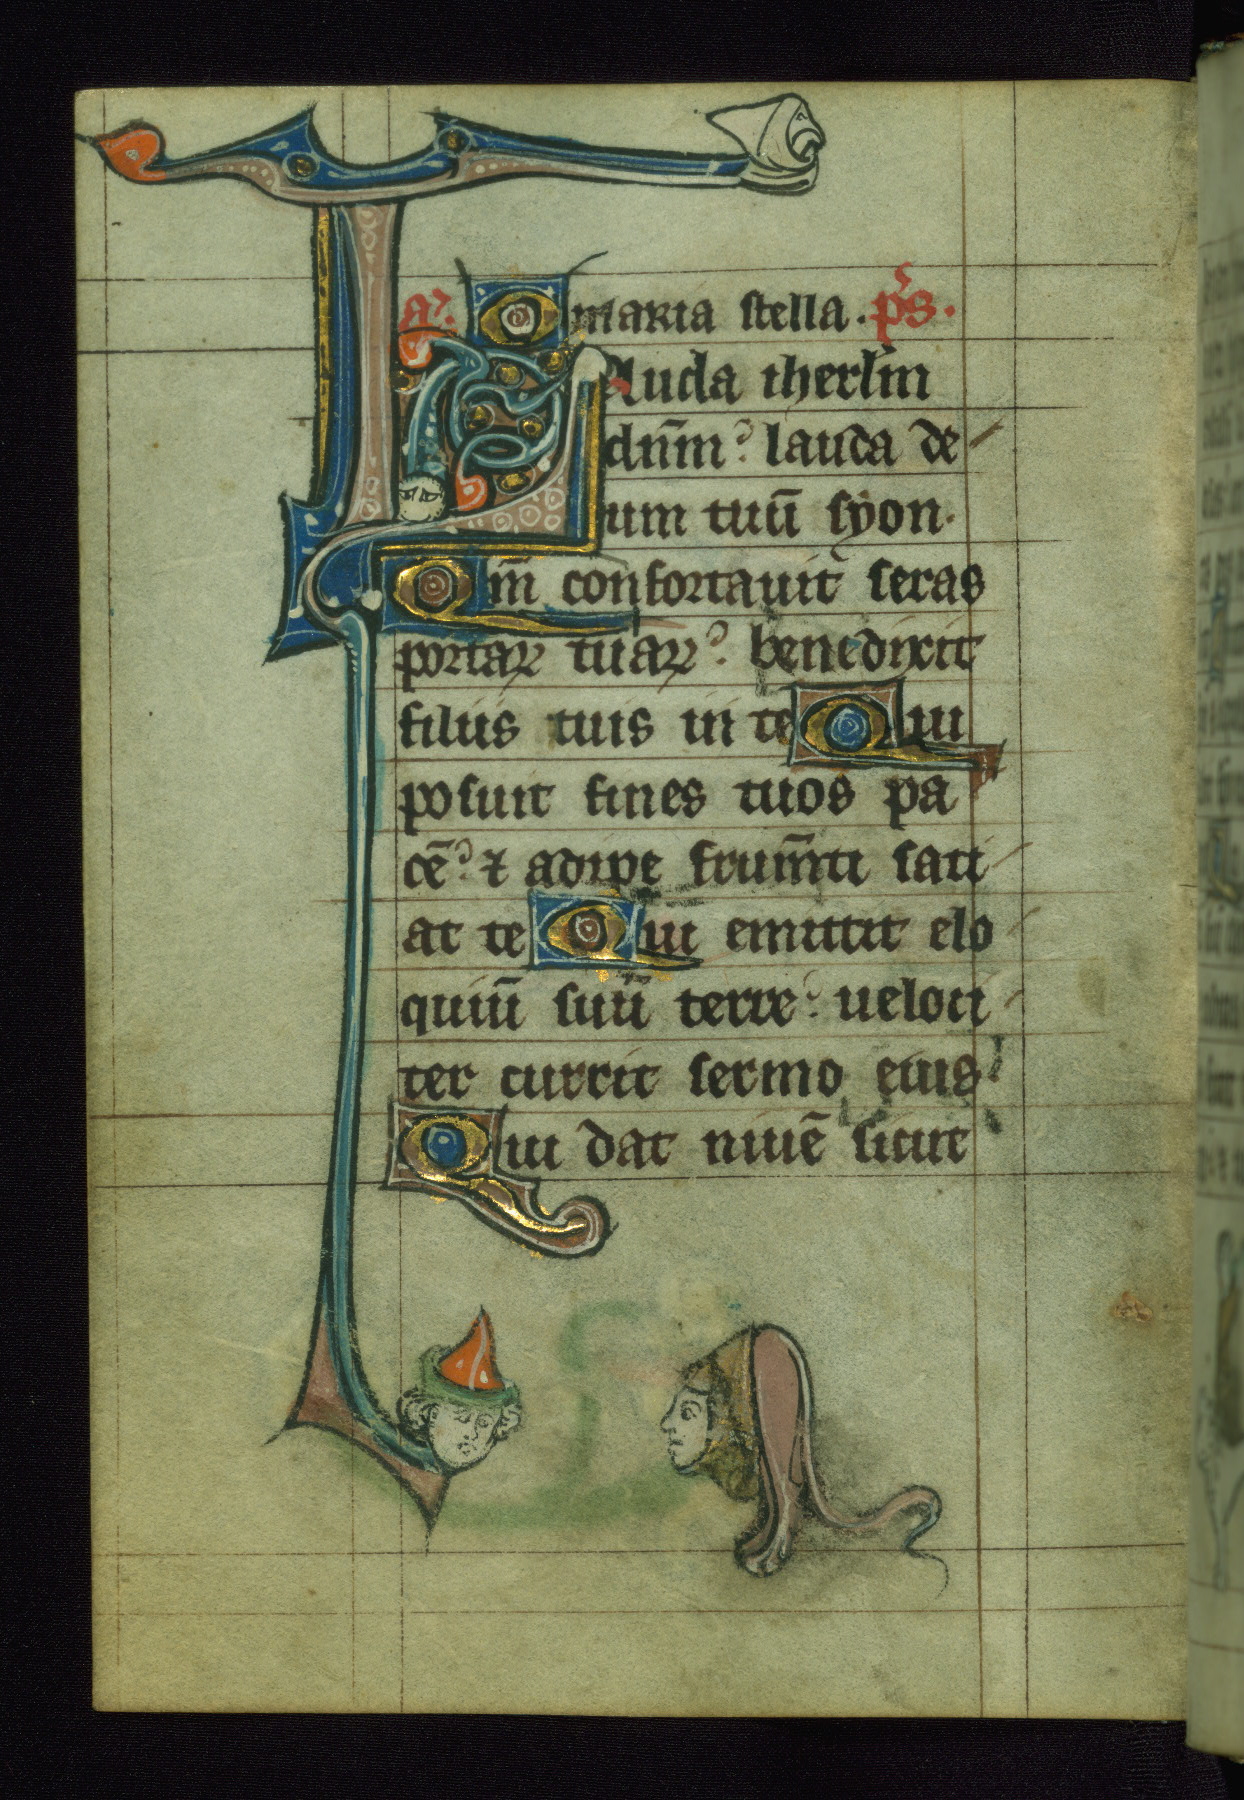 a᷒. O maria stella. p̅s.
Lauda iherl̅m
dn̅m lauda de
um tuū syon.
Qm̅ confortauit seras
portaꝝ tuaꝝ benedixit
filiis tuis in te Qui
posuit fines tuos pa
cē ⁊ adipe frum̅ti sati
at te Qui emittit elo
quiū suū terre ueloci
ter currit sermo eius
Qui dat niuē sicut